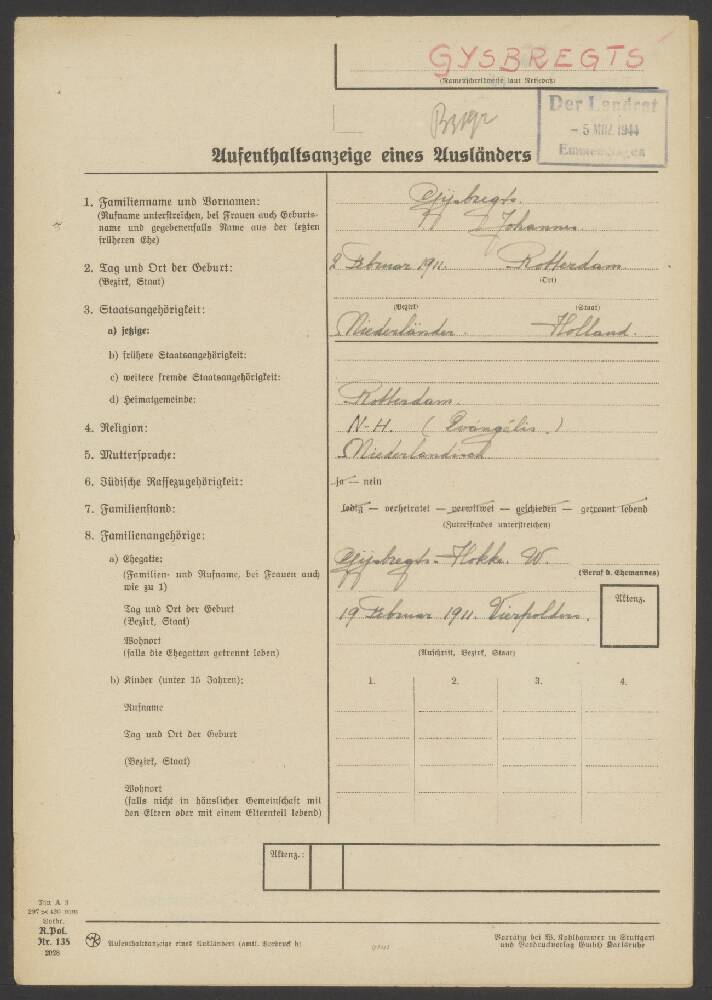 GYSBREGTS
(Namensschreibweise laut Reisepaß)
Der Landrat
- 5 MRZ 1944
Emmendingen
Aufenthaltsanzeige eines Ausländers
1. Familienname und Vornamen:
(Rufname unterstreichen, bei Frauen auch Geburts-
name und gegebenenfalls Name aus der letzten
früheren Ehe)
Gijsbregts.
Johannes.
2. Tag und Ort der Geburt:
(Bezirk, Staat)
2 Februar 1911. Rotterdam
(Ort)
(Bezirk) (Staat)
3. Staatsangehörigkeit:
a) jetzige:
Niederländer. Holland.
b) frühere Staatsangehörigkeit:
c) weitere fremde Staatsangehörigkeit:
d) Heimatgemeinde:
Rotterdam.
4. Religion:
N-H. (Evangélis.)
5. Muttersprache:
Niederlandisch
6. Jüdische Rassezugehörigkeit:
ja — nein
7. Familienstand:
ledig — verheiratet — verwitwet — geschieden — getrennt lebend
(Zutreffendes unterstreichen)
8. Familienangehörige:
a) Ehegatte:
(Familien- und Rufname, bei Frauen auch
wie zu 1)
Gijsbregts-Hokke. W.
(Beruf d. Ehemannes)
Tag und Ort der Geburt
(Bezirk, Staat)
19 Februar 1911. Vierpolders.
Aktenz.
Wohnort
(falls die Ehegatten getrennt leben)
(Anschrift, Bezirk, Staat)
b) Kinder (unter 15 Jahren):
1. 2. 3. 4.
Rufname
Tag und Ort der Geburt
(Bezirk, Staat)
Wohnort
(falls nicht in häuslicher Gemeinschaft mit
den Eltern oder mit einem Elternteil lebend)
Aktenz.:
Din A 3
297 × 420 mm
R.Pol.
Nr. 135
2028
Aufenthaltsanzeige eines Ausländers (amtl. Vordruck b)
Vorrätig bei W. Kohlhammer in Stuttgart
und Vordruckverlag GmbH Karlsruhe